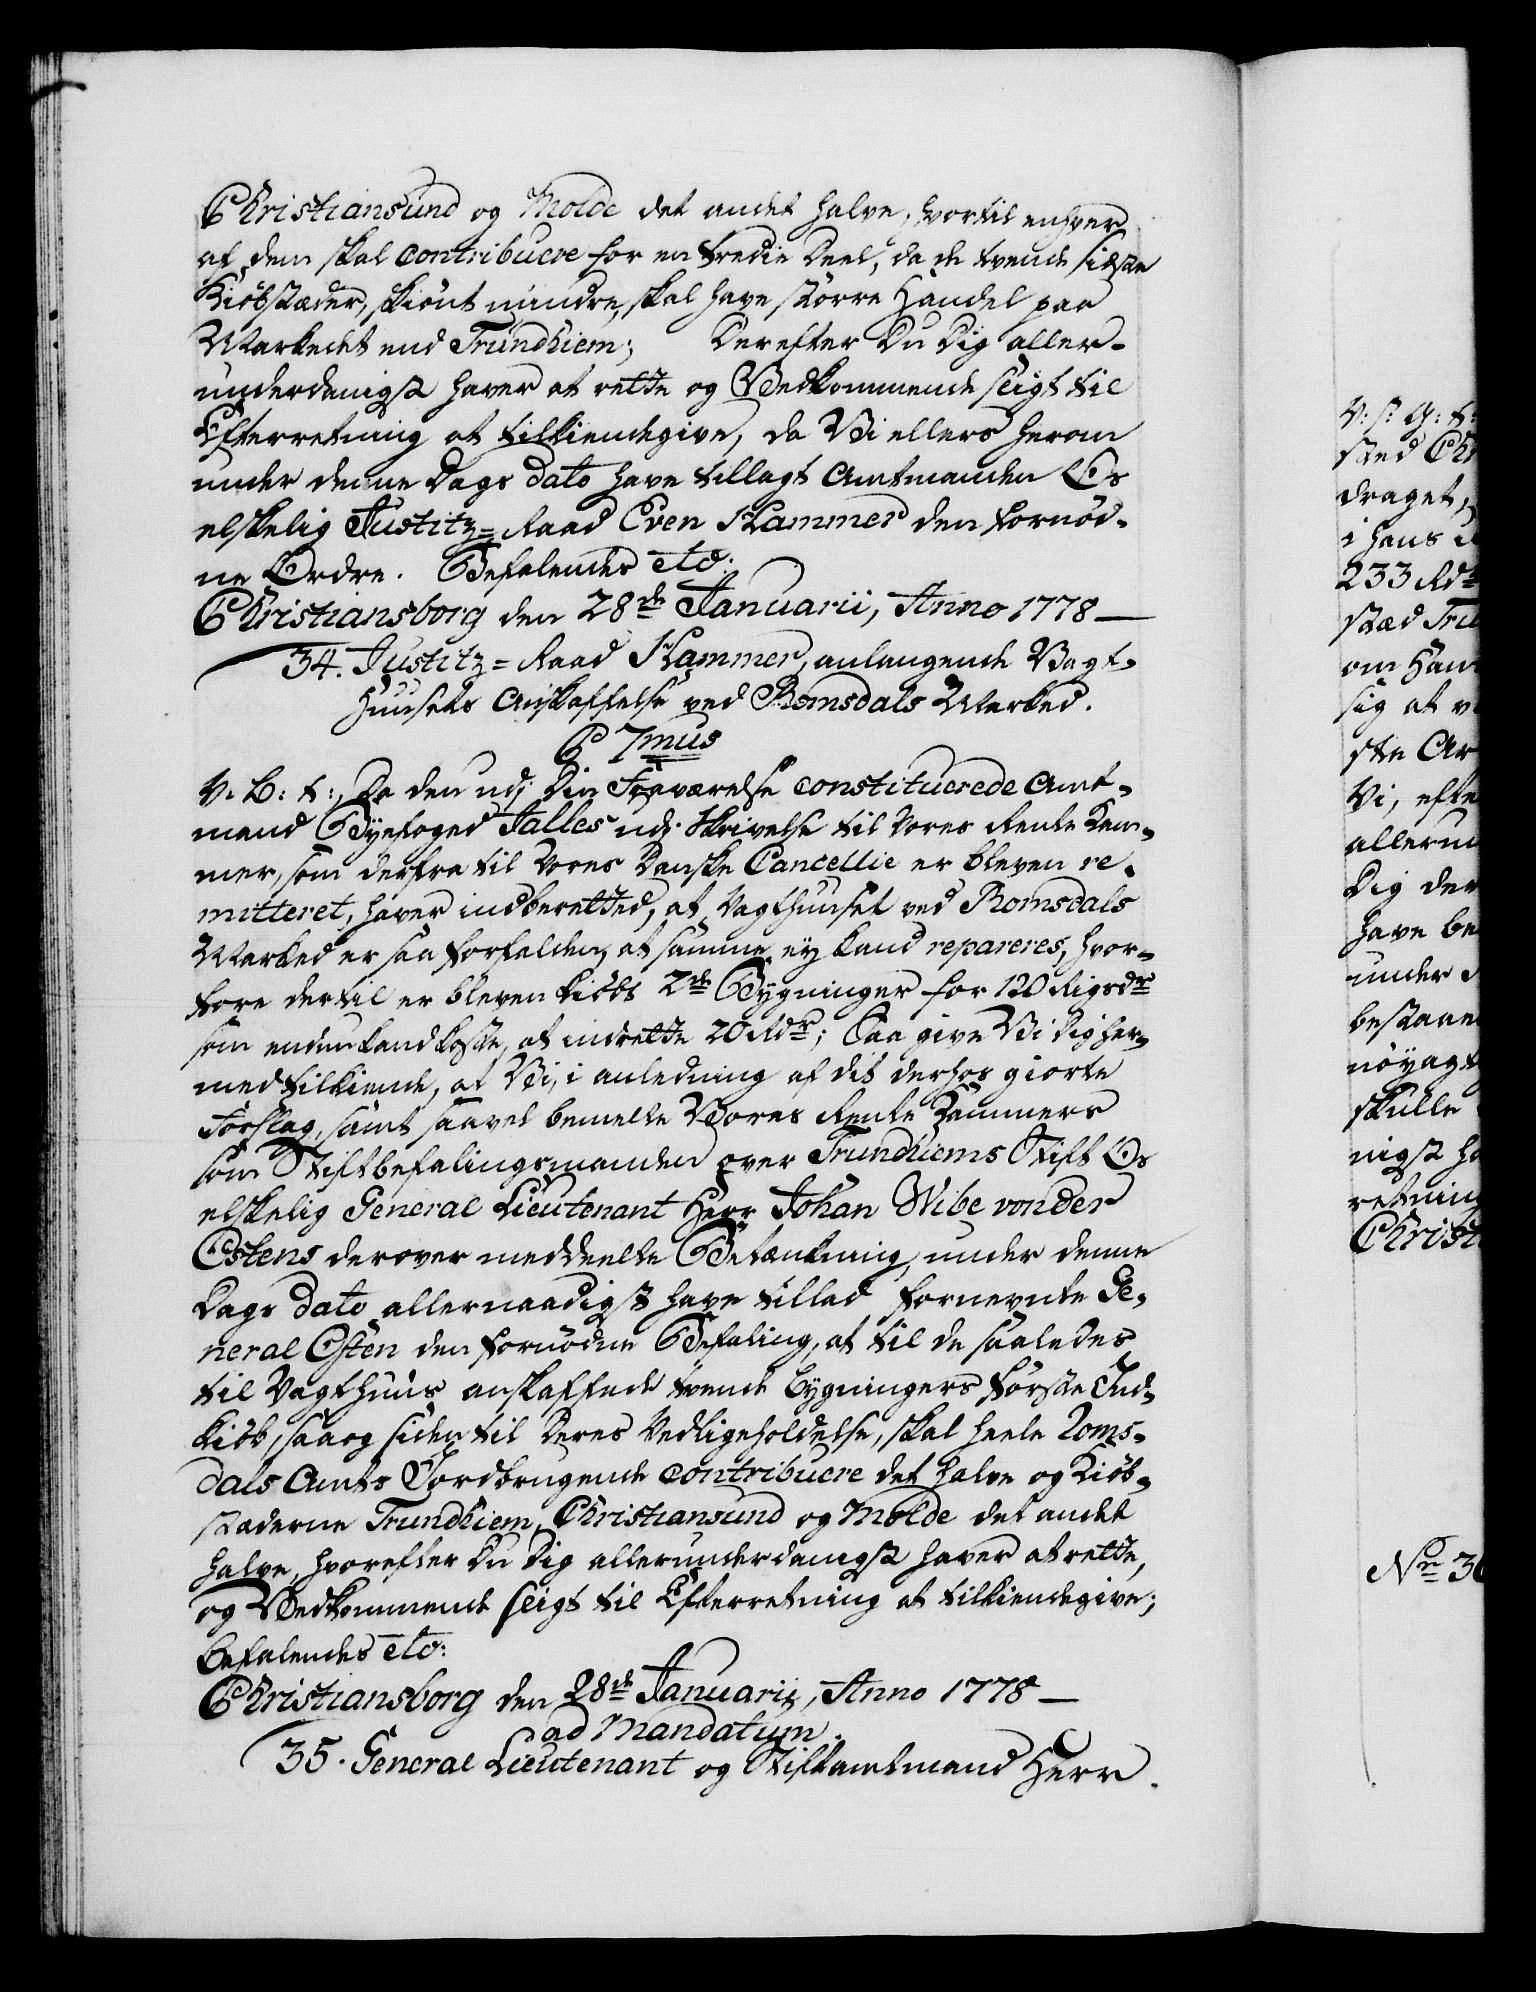 Christiansund og Molde det andet halve, hvortil enhver
af dem skal contribuere for en tredie Deel, da de tvende sidste
Kiöbstæder, skiönt mindre, skal have större Handel paa
Markedet end Trundhiem; Derefter Du Dig aller-
underdanigst haver at rette og Vedkommende sligt til
Efterretning at tilkiendegive, da Vi ellers herom
under denne Dags dato have tillagt Amtmanden Os
elskelig Justitz=Raad Even Hammer den fornöd-
ne Ordre. Befalendes etc:
Christiansborg den 28de Januarii, Anno 1778 —
34. Justitz=Raad Hammer, anlangende Vagt-
Huusets Anskaffelse ved Romsdals Marked.
C 7mus
V. G: t:, Da den udj Din Fraværelse constituerede Amt-
mand Byefoged Jalles udj Skrivelse til Vores Rente Kam-
mer, som derfra til Vores Danske Cancellie er bleven re-
mitteret, haver indberetted, at Vagthuuset ved Romsdals
Marked er saa forfalden, at samme ey kand repareres, hvor-
fore dertil er bleven kiöbt 2de Bygninger for 120 Rigsdr
som endnu kand koste, at indrette 20 Rdr; Saa give Vi Dig her-
med tilkiende, at Vi, i anledning af dit derhos giorte
Forslag, samt saavel bemelte Vores Rente Kammers
som Stiftbefalingsmanden over Trundhiems Stift Os
elskelig General Lieutenant Herr Johan Wibe von der
Ostens derover meddeelte Betænkning, under denne
Dags dato allernaadigst have tillad fornevnte Ge-
neral Osten den fornödne Befaling, at til de saaledes
til Vagthuus anskaffede tvende Bygningers förste Ind-
kiöb, saa og siden til Deres Vedligeholdelse, skal heele Roms-
dals Amts Jordbrugende contribuere det halve og Kiöb-
stæderne Trundhiem, Christiansund og Molde det andet
halve, hvorefter Du Dig allerunderdanigst haver at rette,
og Vedkommende sligt til Efterretning at tilkiendegive;
Befalendes etc:
Christiansborg den 28de Januarii, Anno 1778 —
ad Mandatum.
35. General Lieutenant og Stiftamtmand Herr
V: S: G: t:
sted Chr
draget,
i hans
233 Rdr
stæd Tru
om Ham
sig at v
ste Ar
Vi, efte
allerun
Dig der
have be
under
bestaae
nöyagt
skulle
nigst ha
retning
Christ
No 36